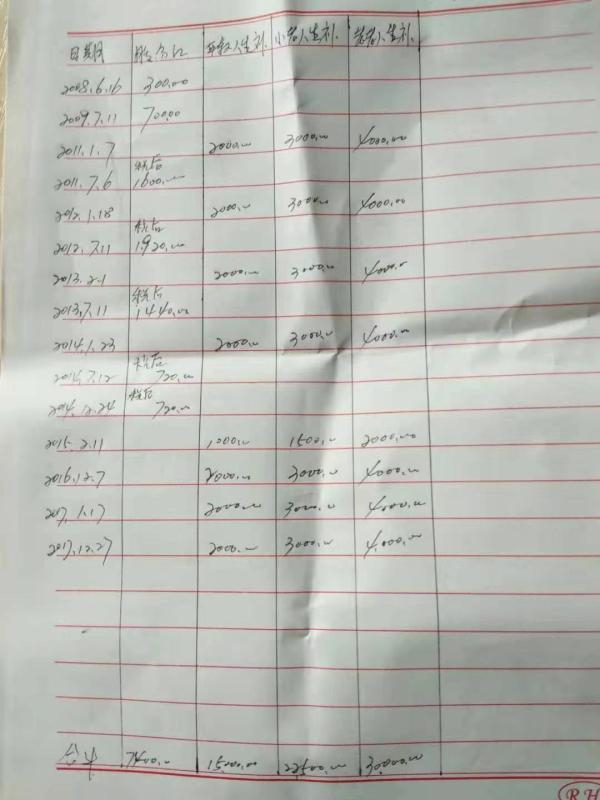 日期 股金红 年轻人生补. 小老人生补. 老老人生补.
2008.6.16 300.00
2009.7.11 700.00
2011.1.7 2000.00 3000.00 4000.00
税后
2011.7.6 1600.00
2012.1.18 2000.00 3000.00 4000.00
税后
2012.7.11 1920.00
2013.2.1 2000.00 3000.00 4000.00
税后
2013.7.11 1440.00
2014.1.23 2000.00 3000.00 4000.00
税后
2014.7.12 720.00
税后
2014.12.24 720.00
2015.2.11 1000.00 1500.00 2000.00
2016.12.7 2000.00 3000.00 4000.00
2017.1.17 2000.00 3000.00 4000.00
2017.12.27 2000.00 3000.00 4,000.00
合计 7400.00 15000.00 22500.00 30000.00
RH